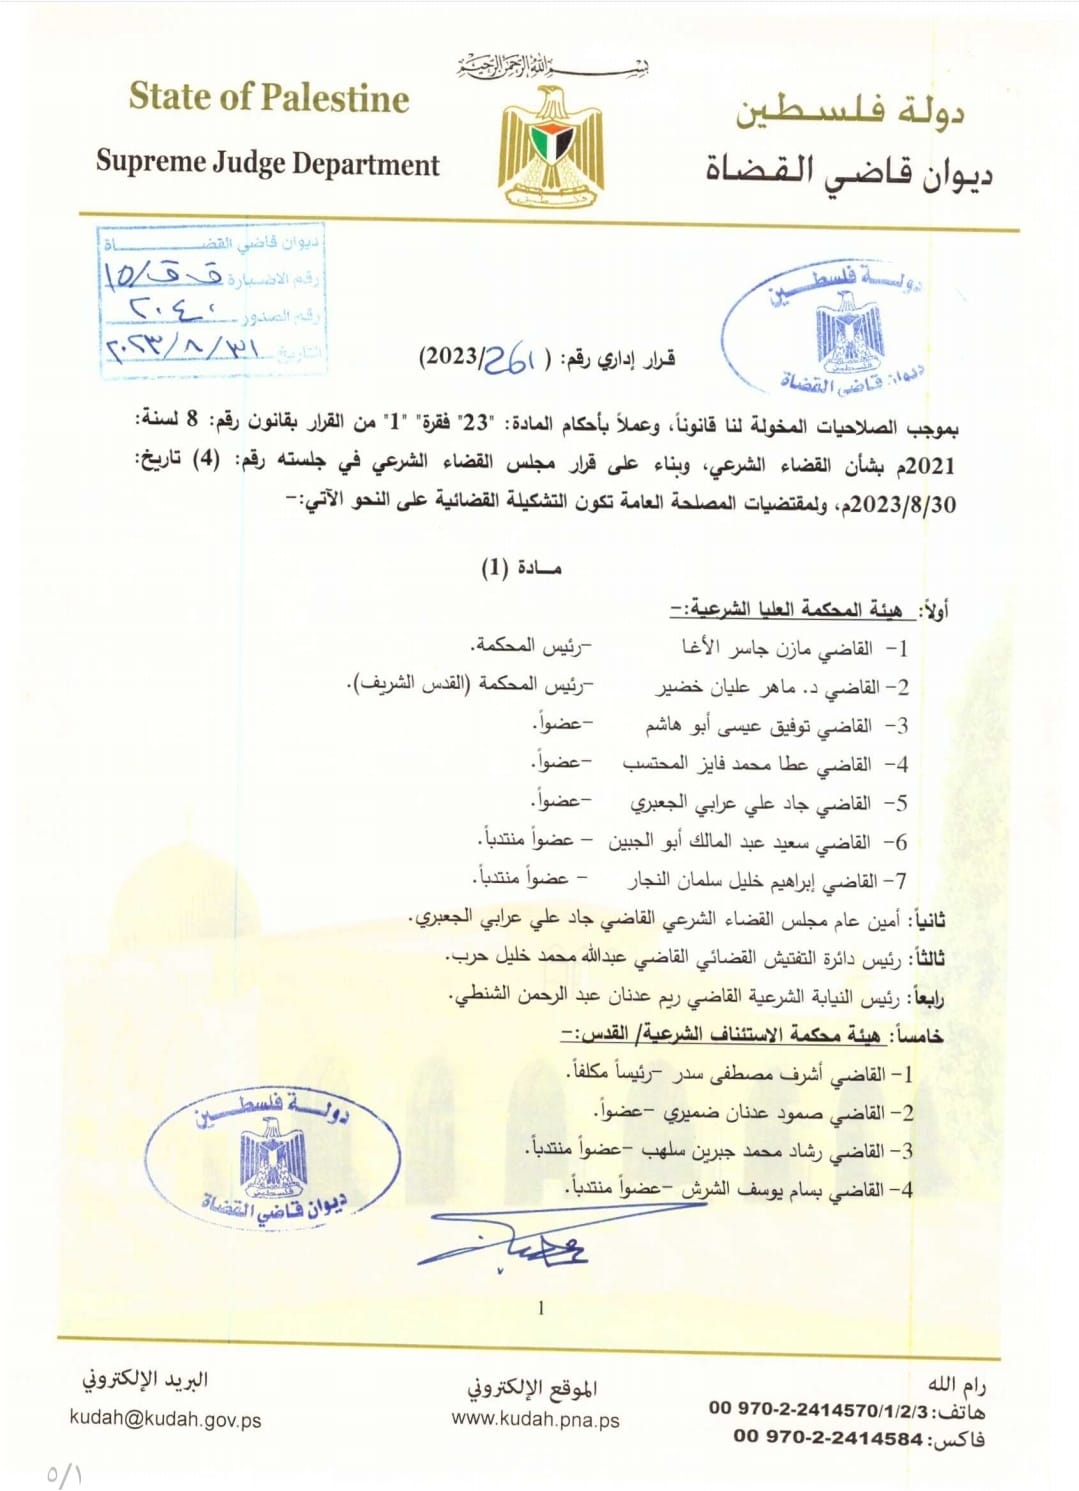 بسم الله الرحمن الرحيم
State of Palestine
دولة فلسطين
Supreme Judge Department
ديوان قاضي القضاة
ديوان قاضي القضاة
رقم الاضبارة ق ق/١٥
رقم الصدور ٢٠٤٠
التاريخ ٢٠٢٣/٨/٣١
دولة فلسطين
ديوان قاضي القضاة
قرار إداري رقم: ( 261/2023)
بموجب الصلاحيات المخولة لنا قانوناً، وعملاً بأحكام المادة: "23" فقرة" "1" من القرار بقانون رقم: 8 لسنة:
2021م بشأن القضاء الشرعي، وبناء على قرار مجلس القضاء الشرعي في جلسته رقم: (4) تاريخ:
2023/8/30م، ولمقتضيات المصلحة العامة تكون التشكيلة القضائية على النحو الآتي:-
مادة (1)
أولاً: هيئة المحكمة العليا الشرعية:-
1- القاضي مازن جاسر الأغا -رئيس المحكمة.
2- القاضي د. ماهر عليان خضير -رئيس المحكمة (القدس الشريف).
3- القاضي توفيق عيسى أبو هاشم -عضواً.
4- القاضي عطا محمد فايز المحتسب -عضواً.
5- القاضي جاد علي عرابي الجعبري -عضواً.
6- القاضي سعيد عبد المالك أبو الجبين - عضواً منتدباً.
7- القاضي إبراهيم خليل سلمان النجار - عضواً منتدباً.
ثانياً: أمين عام مجلس القضاء الشرعي القاضي جاد علي عرابي الجعبري.
ثالثاً: رئيس دائرة التفتيش القضائي القاضي عبدالله محمد خليل حرب.
رابعاً: رئيس النيابة الشرعية القاضي ريم عدنان عبد الرحمن الشنطي.
خامساً: هيئة محكمة الاستئناف الشرعية/ القدس:-
1- القاضي أشرف مصطفى سدر -رئيساً مكلفاً.
2- القاضي صمود عدنان ضميري -عضواً.
3- القاضي رشاد محمد جبرين سلهب -عضواً منتدباً.
4- القاضي بسام يوسف الشرش -عضواً منتدباً.
دولة فلسطين
ديوان قاضي القضاة
1
رام الله
هاتف: 00 970-2-2414570/1/2/3
فاكس: 00 970-2-2414584
الموقع الإلكتروني
www.kudah.pna.ps
البريد الإلكتروني
kudah@kudah.gov.ps
٥/١